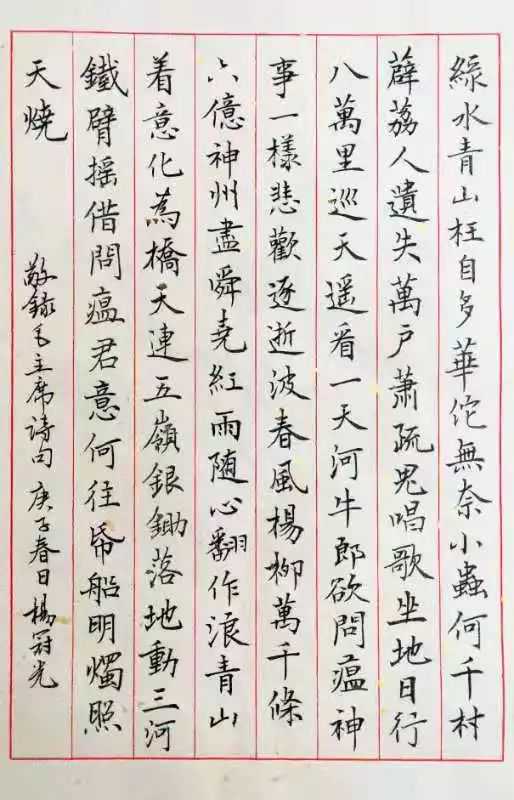 綠水青山枉自多華佗無奈小蟲何千村
薜荔人遺失萬戶蕭疏鬼唱歌坐地日行
八萬里巡天遥看一天河牛郎欲問瘟神
事一樣悲歡逐逝波春風楊柳萬千條
六億神州盡舜堯紅雨随心翻作浪青山
着意化為橋天連五嶺銀鋤落地動三河
鐵臂摇借問瘟君意何往帋船明燭照
天燒
敬錄毛主席詩句 庚子春日楊冠光